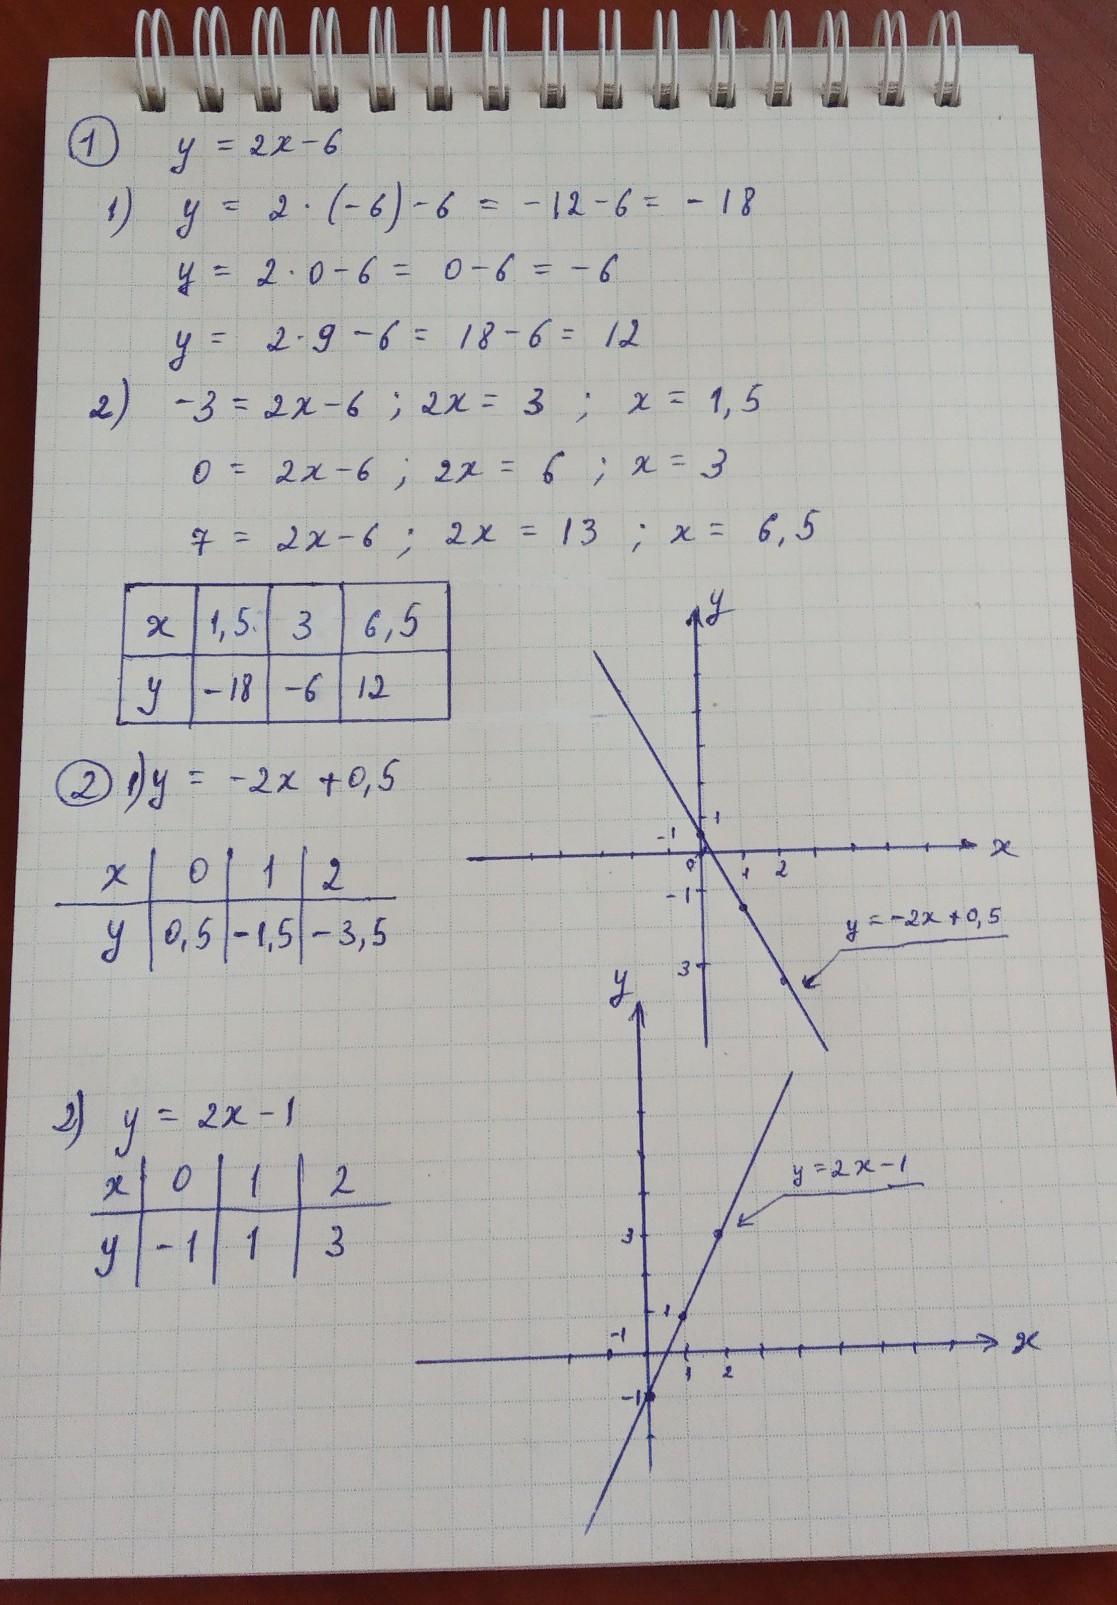 ① y = 2x-6
1) y = 2·(-6)-6 = -12-6 = -18
y = 2·0-6 = 0-6 = -6
y = 2·9-6 = 18-6 = 12
2) -3 = 2x-6 ; 2x = 3 ; x = 1,5
0 = 2x-6 ; 2x = 6 ; x = 3
7 = 2x-6 ; 2x = 13 ; x = 6,5
x 1,5 3 6,5
y -18 -6 12
② 1) y = -2x+0,5
x 0 1 2
y 0,5 -1,5 -3,5
y
1
-1
0 1 2 x
-1
3
y=-2x+0,5
2) y = 2x-1
x 0 1 2
y -1 1 3
y
y=2x-1
3
1
-1
1 2 x
-1